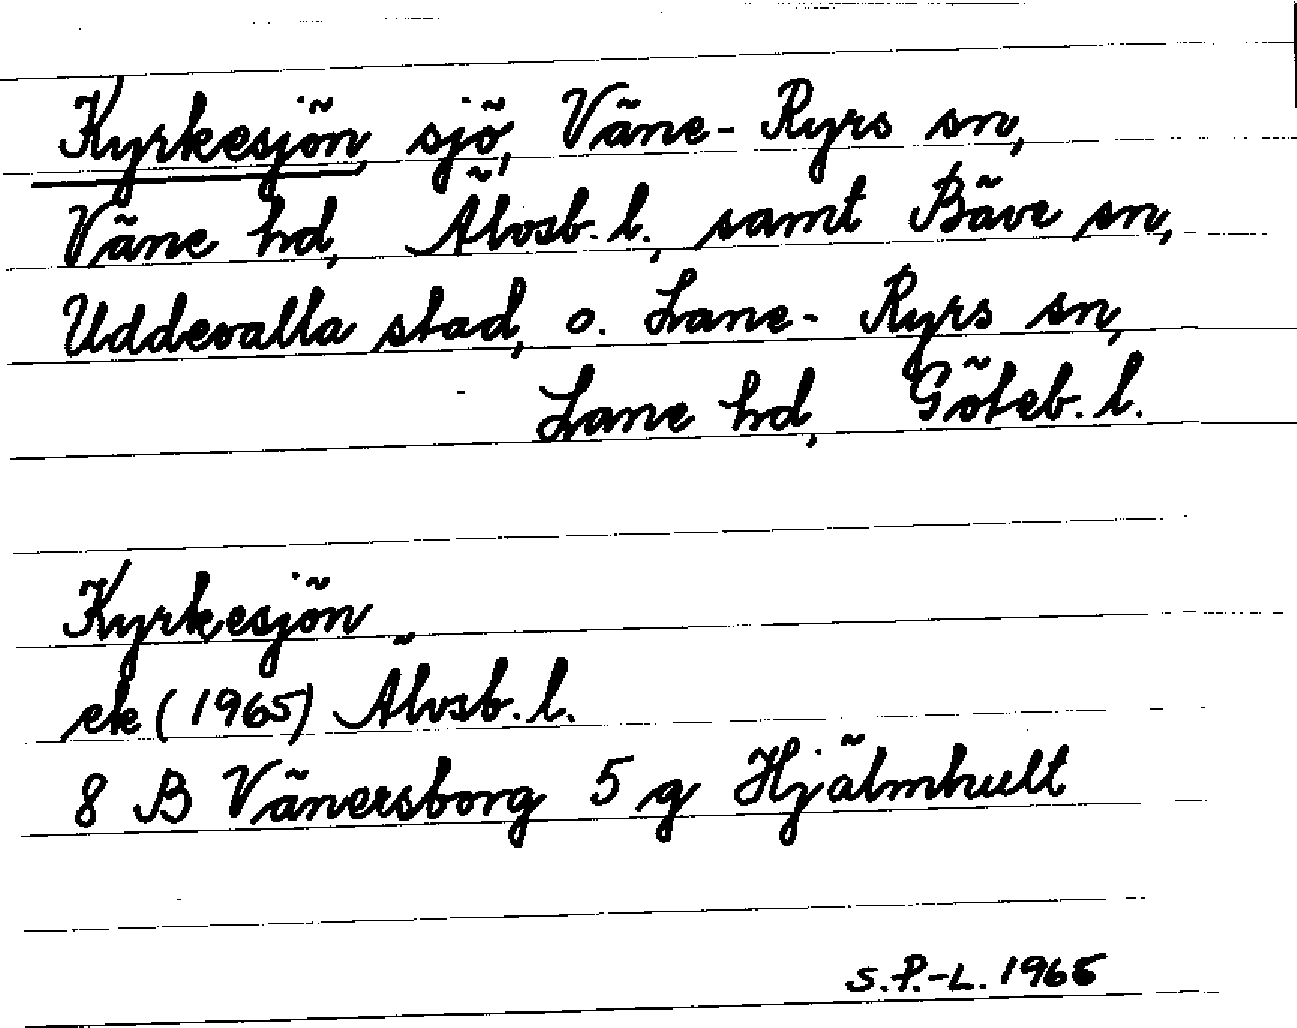 Kyrkesjön, sjö, Väne-Ryrs sn,
Väne hd, Älvsb. l., samt Bäve sn,
Uddevalla stad, o. Lane-Ryrs sn,
Lane hd, Göteb. l.
Kyrkesjön
ek (1965) Älvsb. l.
8 B Vänersborg 5 g Hjälmhult
S.P.-L. 1965